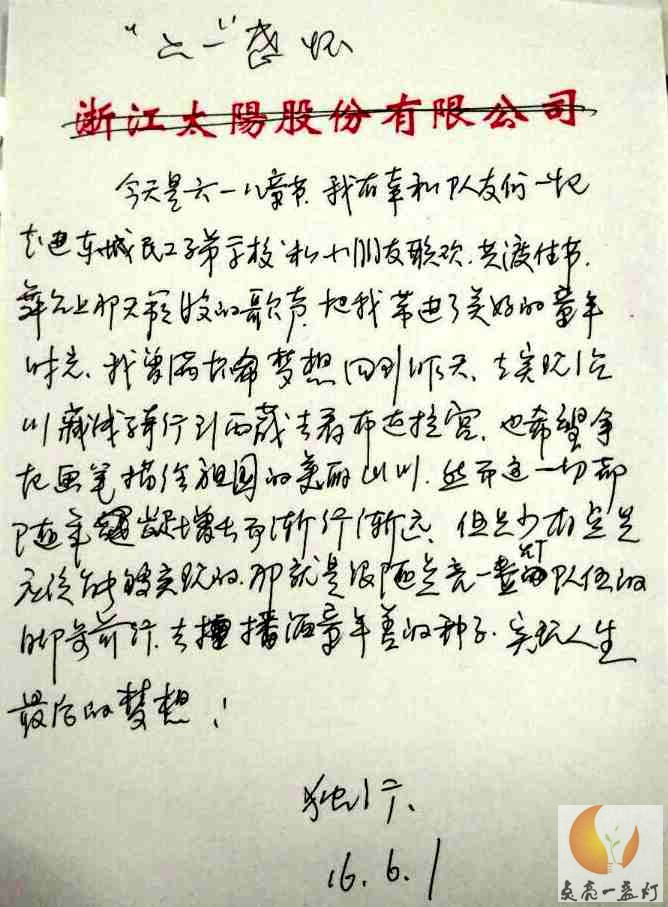 “六一”感怀
浙江太陽股份有限公司
今天是六一儿童节、我有幸和队友们一起
走进东城民工子弟学校和小朋友联欢、共渡佳节、
舞台上那天籁般的歌声、把我带进了美好的童年
时光、我曾满怀希梦想回到昨天、去实现
川藏线骑行到西藏去看布达拉宫、也希望拿
起画笔描绘祖国的美丽山川、然而这一切都
随年龄增长而渐行渐远、但至少有一点是
应该能够实现的、那就是跟随点亮一盏灯队伍的
脚步前行、去播洒童年善的种子、实现人生
最后的梦想！
独行、
16.6.1
点亮一盏灯